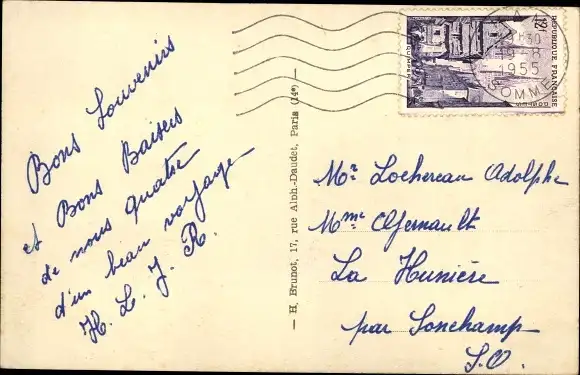 Bons Souvenirs
et Bons Baisers
de nous quatre
d'un beau voyage
H. L. J. R.
— H. Brunot, 17, rue Alph.-Daudet, Paris (14ᵉ) —
RÉPUBLIQUE FRANÇAISE
12f
19-8
1955
SOMME
Mr Lochereau Adolphe
Mme Afernault
La Hunière
par Sonchamp
S.O.